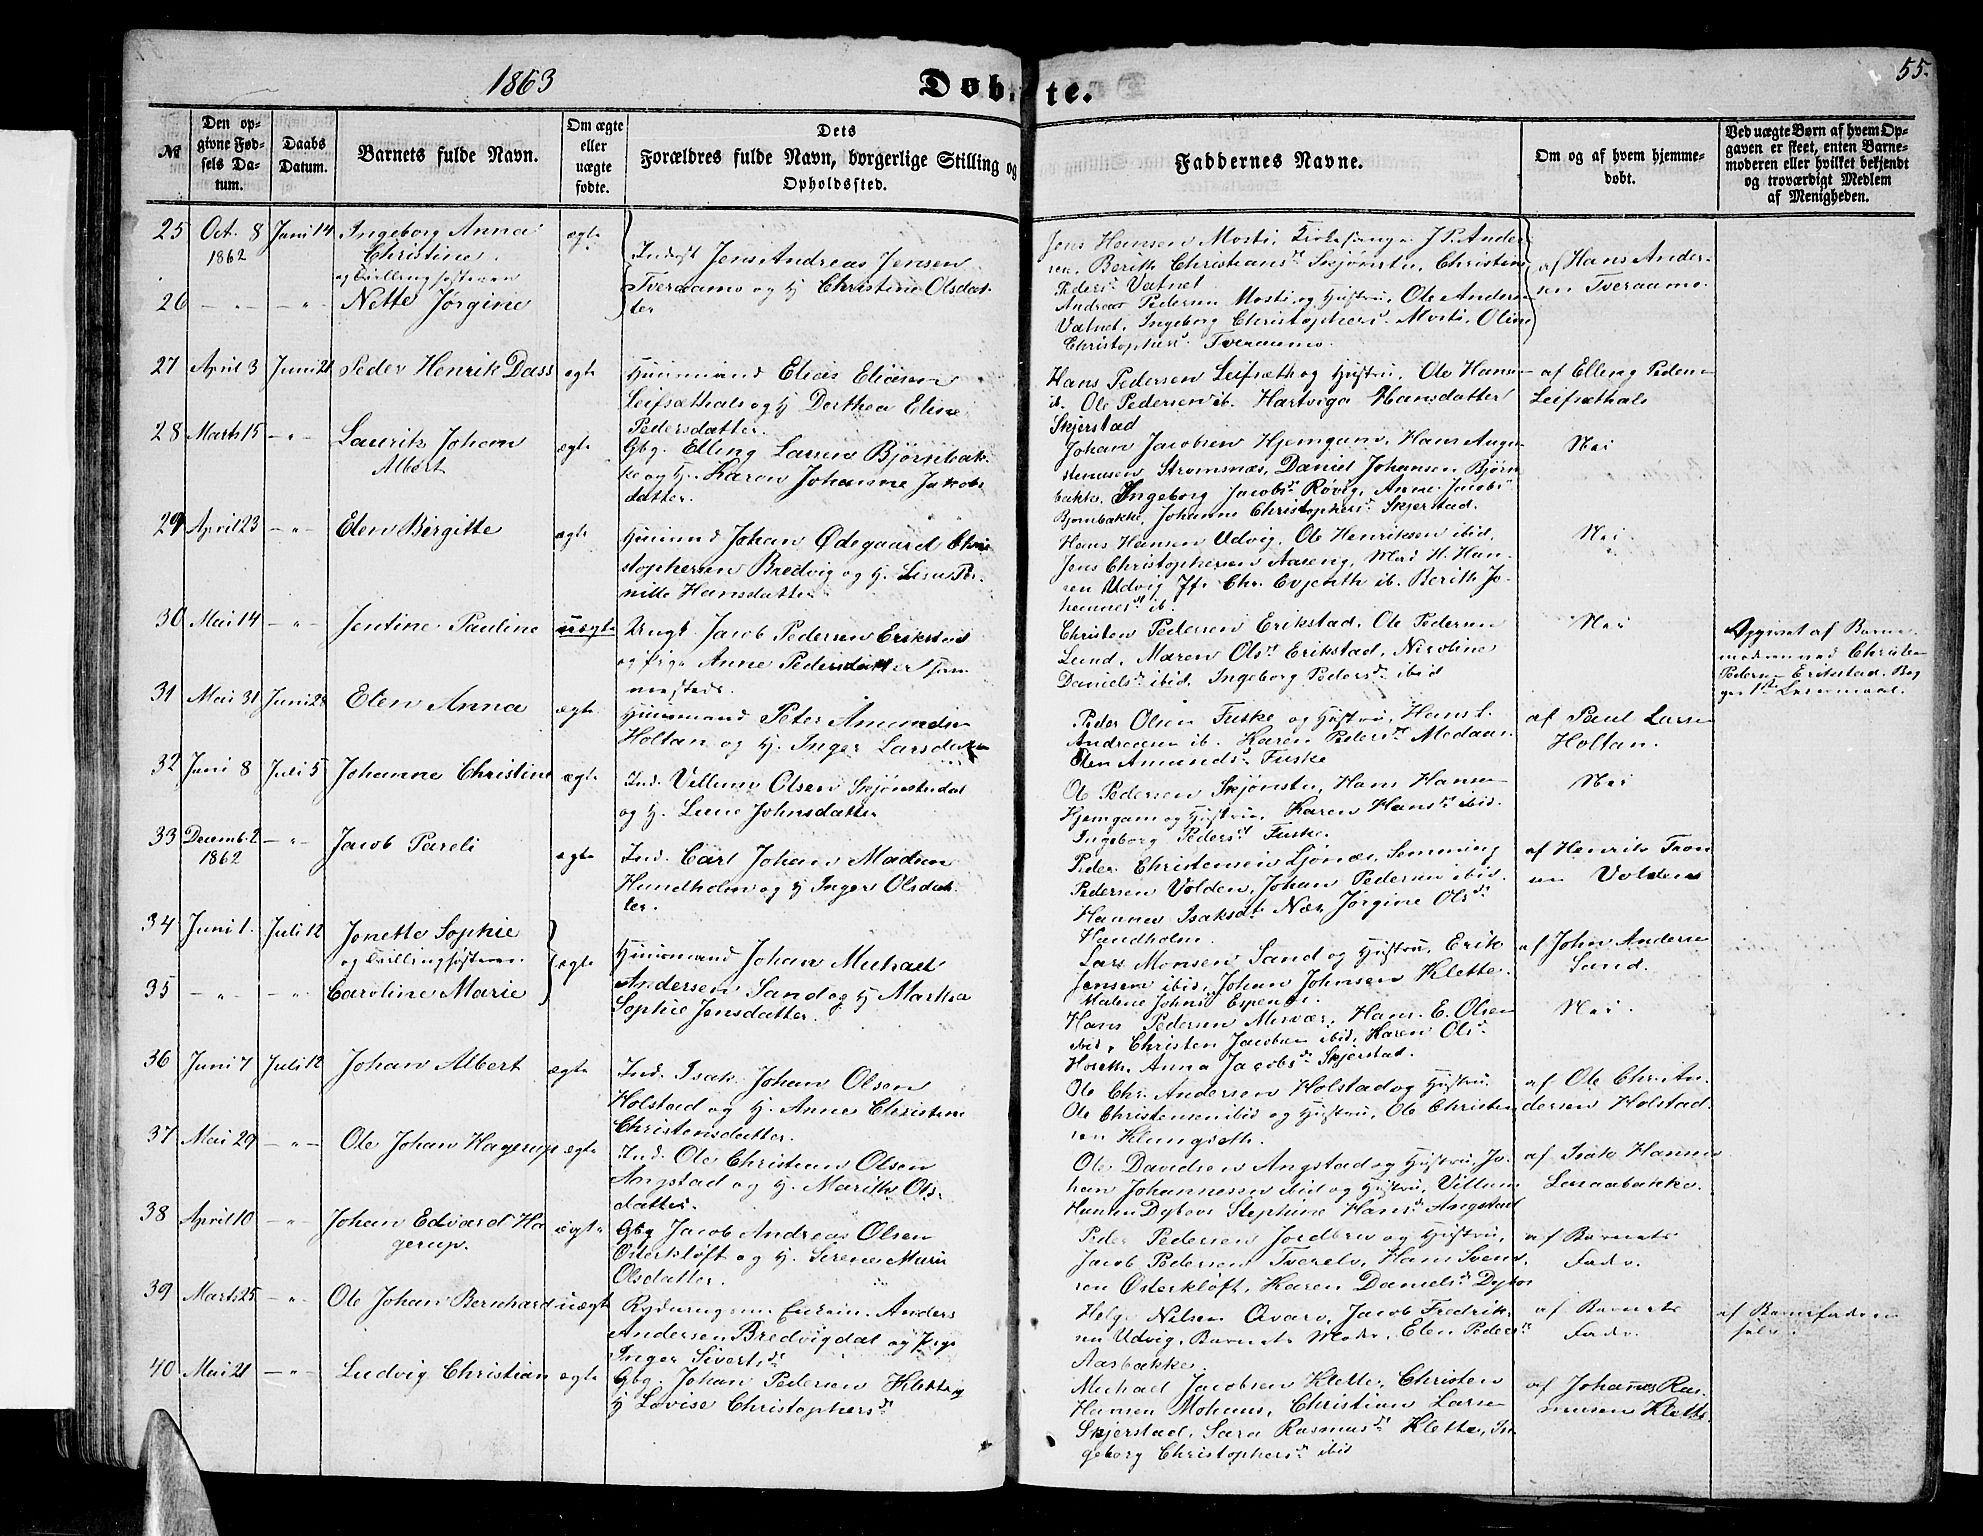 1863
Døbte.
55.
№
Den opgivne Fødsels Datum.
Daabs Datum.
Barnets fulde Navn.
Om ægte eller uægte fødte.
Dets Forældres fulde Navn, borgerlige Stilling og Opholdssted.
Faddernes Navne.
Om og af hvem hjemmedøbt.
Ved uægte Børn af hvem Opgaven er skeet, enten Barnemoderen eller hvilket bekjendt og troværdigt Medlem af Menigheden.
25 Oct. 8 1862 Juni 14 Ingeborg Anna
Christine
og Tvillingsøsteren
ægte
Inderst Jens Andreas Jensen
Tveraamo og H Christine Olsdat-
ter
Jens Hansen Mosti, Kirkesanger J P. Ander
sen, Berith Christiansd. Skjønstu, Christine
Peders. Vatnet
af Hans Ander-
sen Tveraamo.
26 — " — — " Nette Jørgine
Andreas Pedersen Mosti og Hustru, Ole Anders
Vatnet, Ingeborg Christophers. Mosti, Oline
Christophers. Tveraamo.
27 April 3 Juni 21 Peder Henrik Dass ægte
Huusmand Elias Eliasen
Leifsæthals og H Dorthea Eline
Pedersdatter.
Hans Pedersen Leifsæth og Hustru, Ole Hans
id. Ole Pedersen ib. Hartviga Hansdatter
Skjerstad
af Elling Peders
Leifsæthals
28 Marts 15 — " — Laurits Johan
Albert
ægte
Gbg. Elling Larsen Bjørnbak-
ke og H. Karen Johanne Jakobs
datter.
Johan Jacobsen Hjemgam, Hans Augu
stinusen Strømsnæs, Daniel Johansen Bjørn
bakke, Ingeborg Jacobsd. Røvig, Anne Jacobs
Bjørnbakke, Johanne Christophers. Skjerstad.
Nei
29 April 23 — " — Elen Birgitte ægte
Huusmd Johan Ødegaard Chri
stophersen Bredvig og H. Lisa Per-
nille Hansdatter
Hans Hansen Udvig, Ole Henriksen ibid,
Jens Christophersen Aaseng, Mad. H. Han-
sen Udvig Jfr. Chr. Evjenth ib. Berith Jo-
hannesd. ib.
Nei
30 Mai 14 — " — Jentine Pauline uægte
Ungk. Jacob Pedersen Erikstad
og Pige Anne Pedersdatter sam
mesteds.
Christen Pedersen Erikstad, Ole Pedersen
Lund, Maren Olsd. Erikstad, Nicoline
Daniels. ibid, Ingeborg Pedersd. ibid
Nei
Opgivet af Barne
moderen ved Christen
Pedersen Erikstad. Beg
ges 1ste Leiermaal.
31 Mai 31 Juni 28 Elen Anna ægte
Huusmand Peter Amundsen
Holtan og H. Inger Larsdatter
Peder Olsen Fuske og Hustru, Hans L.
Andreasen ib. Karen Pedersd. Medaas
Elen Amundsd. Fuske
af Paul Larsen
Holtan.
32 Juni 8 Juli 5 Johanne Christine ægte
Ind. Villum Olsen Skjønstudal
og H. Lene Johnsdatter
Ole Pedersen Skjønstu, Hans Hansen
Hjemgam og Hustru, Karen Hansd. ibid.
Ingeborg Pedersd. Fuske.
Nei
33 Decemb. 2 1862 — " — Jacob Pareli ægte
Ind. Carl Johan Madsen
Hundholm og H Inger Olsdat-
ter.
Peder Christensen Ljønæs, Semming
Pedersen Volden, Johan Pedersen ibid.
Hanna Isaksdt. Næs, Jørgine Olsd.
Hundholm.
af Henrik Tron
sen Volden
34 Juni 1. Juli 12 Jonette Sophie
og Tvillingsøsteren
ægte
Huusmand Johan Michael
Andersen Sand og H Martha
Sophie Jensdatter.
Lars Monsen Sand og Hustru, Erik
Jensen ibid, Johan Johnsen Klette,
Malene Johnsd. Espenes.
af John Anders
Sand.
35 — " — — " — Caroline Marie
Hans Pedersen Misvær, Hans E. Olsen
ibid, Christen Jacobsen ibid, Karen Olsd.
Anna Jacobsd. Skjerstad.
Nei.
36 Juni 7 Juli 12 Johan Albert ægte
Ind. Isak Johan Olsen
Holstad og H. Anne Christine
Christensdatter.
Ole Chr. Andersen Holstad og Hustru,
Ole Christensen ibid og Hustru, Ole Christen
sen Klungseth.
af Ole Chr. An-
dersen Holstad.
37 Mai 29 — " — Ole Johan Hagerup ægte
Ind. Ole Christian Olsen
Angstad og H. Marith Ols-
datter.
Ole Davidsen Angstad og Hustru, Jo-
han Johannesen ibid og Hustru, Villum
Hansen Dybvos Stephine Hansd. Angstad
af Isak Hanss
Laraabakke.
38 April 10 — " — Johan Edvard Ha
gerup.
ægte
Gbg Jacob Andreas Olsen
Osterkløft og H. Serene Marie
Olsdatter.
Peder Pedersen Jordbro og Hustru,
Jacob Pedersen Tverelv, Hans Svend
sen Osterkløft, Karen Danielsd. Dybvos
af Barnets
Fader.
39 Marts 25 — " — Ole Johan Bernhard uægte
Enkem. Anders
Andersen Bredvigdal og Pige
Inger Sivertsd.
Helge Nilsen Qvarv, Jacob Fredrik
sen Udvig, Barnets Moder, Elen Pedersd.
Aasbakke.
af Barnets
Fader.
af Barnefaderen
selv.
40 Mai 21 — " — Ludvig Christian ægte
Gbg. Johan Pedersen Klette og
H Lovise Christophersd.
Michael Jacobsen Klette, Christen
Hansen Mohus, Christian Larsen
Skjerstad, Sara Rasmusd. Klette, In
geborg Christophersd. ibid
af Johannes Ras-
musen Klette.